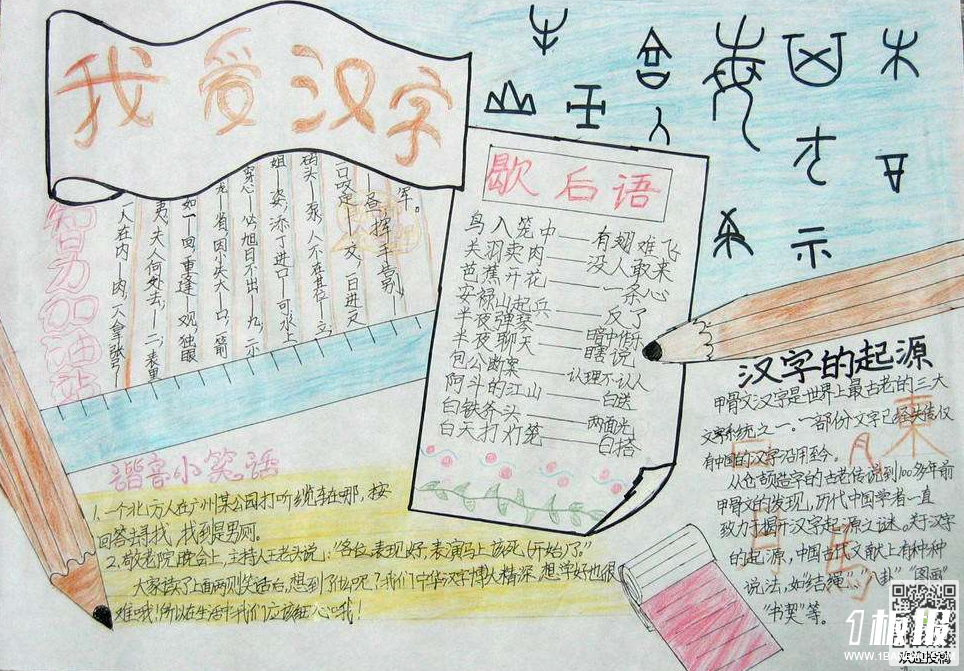 我爱汉字
智力加油站
二人在内—肉,一人拿张弓—
夷,夫人何处去—二,表里
如一—回,重逢—观,独眼
龙—省,因小失大—口,一箭
穿心—必,旭日不出—九,二小
姐—姿,添丁进口—可,水上
码头—泵,人不在其位—立,
一口咬定—交,一日进
挥手告别,
军。
歇后语
鸟入笼中——有翅难飞
关羽卖肉——没人敢来
芭蕉开花——一条心
安禄山起兵——反了
半夜弹琴——暗中作乐
半夜聊天——瞎说
包公断案——认理不认人
阿斗的江山——白送
白铁斧头——两面光
白天打灯笼——白搭
谐音小笑话
1.一个北方人在广州某公园打听缆车在哪,按
回答去寻找,找到是男厕。
2.敬老院晚会上,主持人王老头说:"各位表现好,表演马上该死(开始)了。"
大家读了上面两则笑话后,想到了什么呢?我们中华汉字博大精深,想学好也很
难哦!所以在生活中我们应该细心哦!
汉字的起源
甲骨文汉字是世界上最古老的三大
文字系统之一。一部份文字已经失传仅
有中国的汉字沿用至今。
从仓颉造字的古老传说到100多年前
甲骨文的发现,历代中国学者一直
致力于揭开汉字起源之谜。关于汉字
的起源,中国古代文献上有种种
说法,如"结绳"、"八卦"、"图画"
"书契"等。
1板报
WWW.1BANBAO.COM